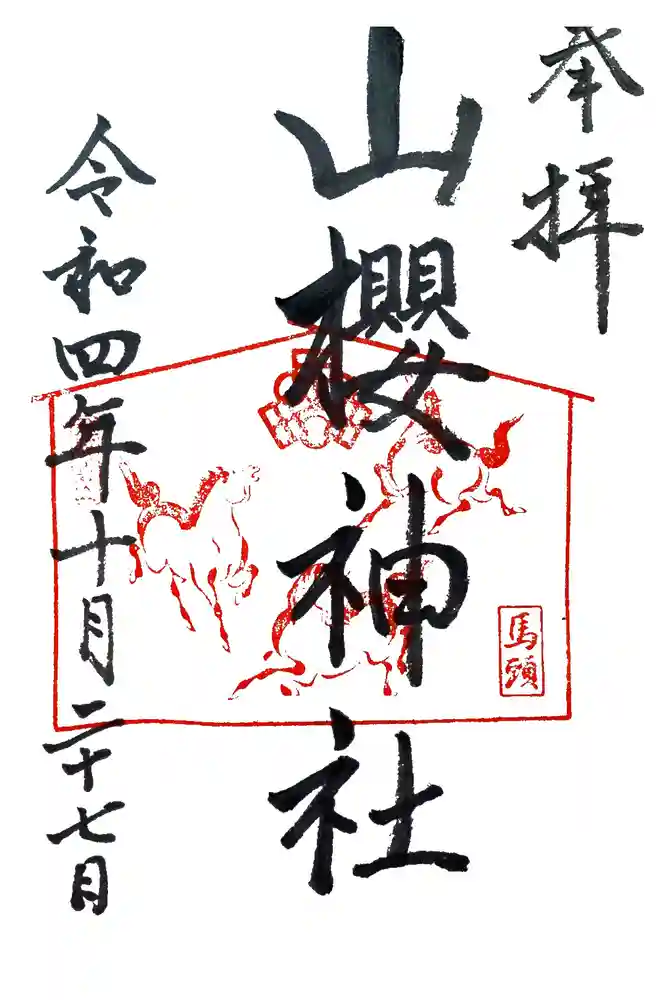 奉拝
山櫻神社
令和四年十月二十七日
馬頭